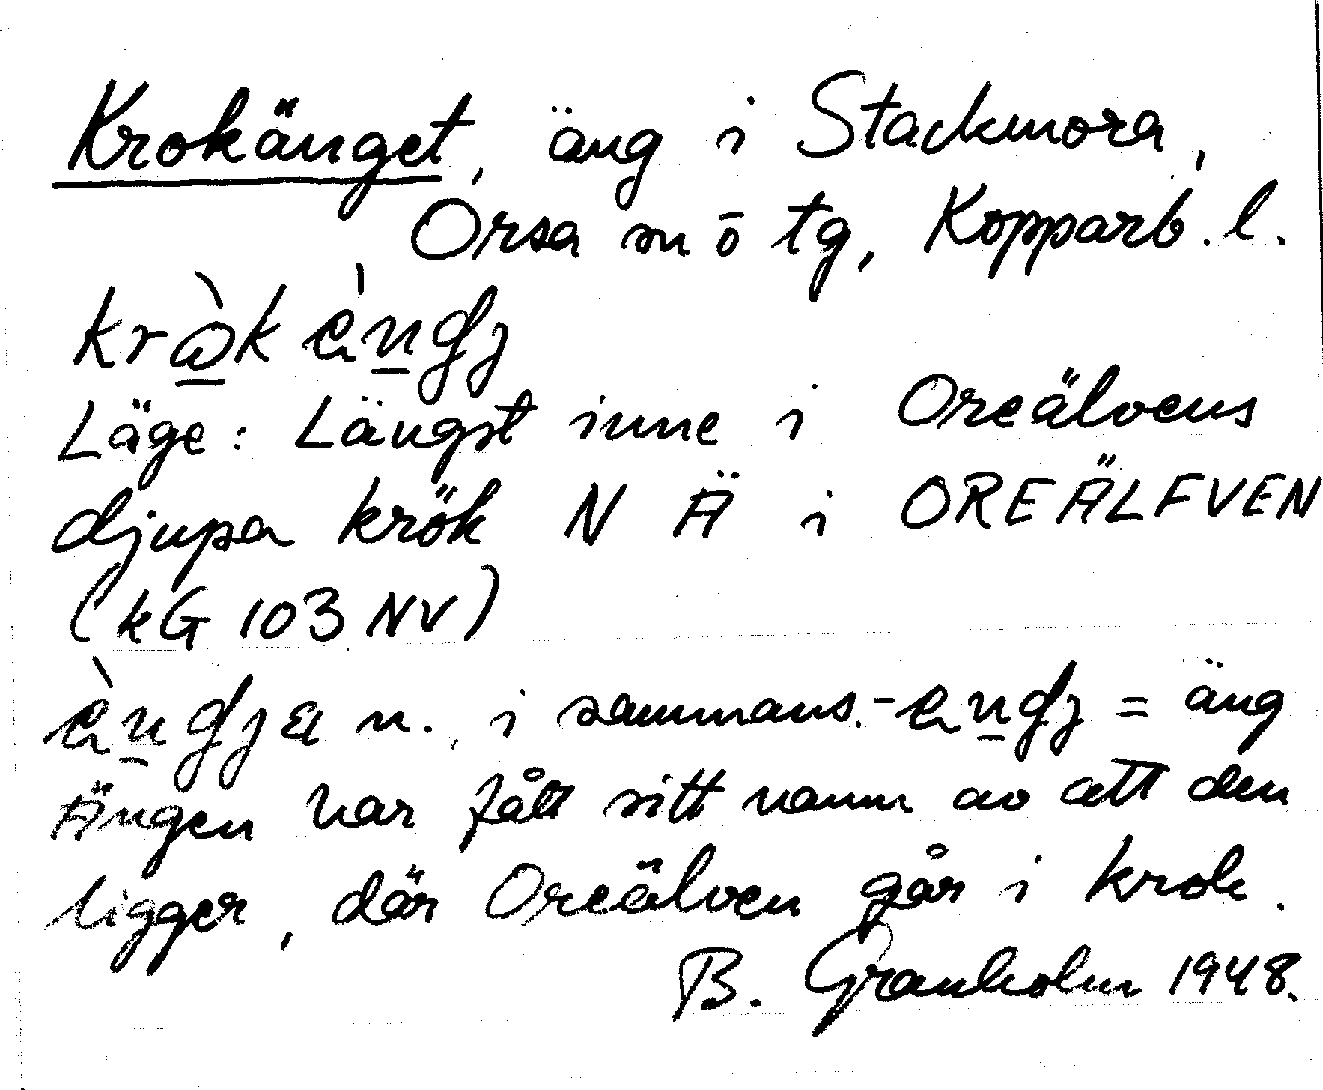 Krokänget, äng i Stackmora,
Orsa sn ō tg, Kopparb. l.
Läge: Längst inne i Oreälvens
djupa krök N Ä i OREÄLFVEN
(kG 103 NV)
n. i sammans. = äng
Ängen har fått sitt namn av att den
ligger, där Oreälven går i krok.
B. Granholm 1948.